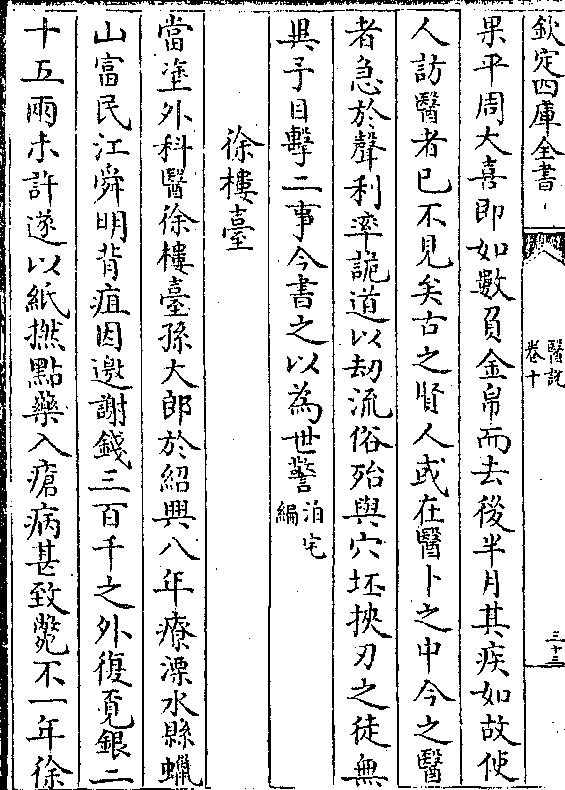 欽定四庫全書
醫說
卷十
三十三
果平周大喜即如數負金帛而去後半月其疾如故使
人訪醫者已不見矣古之賢人或在醫卜之中今之醫
者急於聲利率詭道以劫流俗殆與穴坯挾刃之徒無
異予目擊二事今書之以為世警泊宅
編
徐樓臺
當塗外科醫徐樓臺孫大郎於紹興八年療溧水縣蠟
山富民江舜明背疽因邀謝錢三百千之外復覔銀二
十五兩未許遂以紙撚點藥入瘡病甚致斃不一年徐